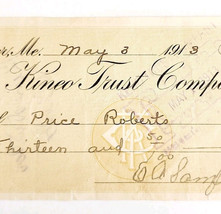 Me. May 3 1913
Kineo Trust Compa
Price Roberts
Thirteen and 50/00